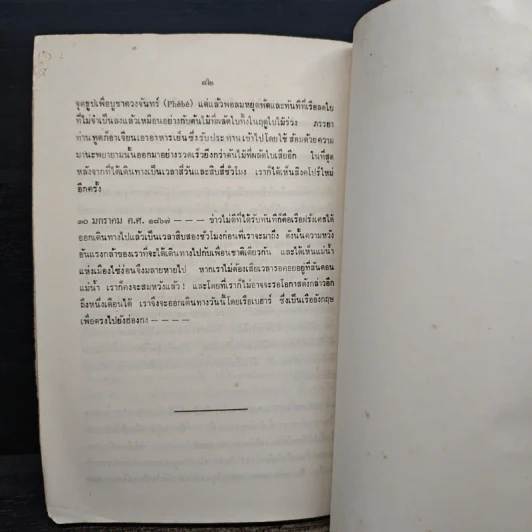 ๑๒
จุดธูปเพื่อบูชาดวงจันทร์ (Phébé) แต่แล้วพอลมหยุดพัดและทันทีที่เรือลดใบ
ที่ไม่จำเป็นลงแล้วเหมือนอย่างกับต้นไม้ที่ผลัดใบทิ้งในฤดูใบไม้ร่วง ภรรยา
ท่านทูตก็อาเจียนเอาอาหารเย็น ซึ่งรับประทานเข้าไปโดยใช้ส้อมด้วยความ
มานะพยายามนั้นออกมาอย่างรวดเร็วยิ่งกว่าต้นไม้ที่ผลัดใบเสียอีก ในที่สุด
หลังจากที่ได้เดินทางเป็นเวลาสี่วันและสิบสี่ชั่วโมง เราก็ได้เห็นสิงคโปร์ใหม่
อีกครั้ง
๓๐ มกราคม ค.ศ. ๑๘๖๗ — — — ข่าวไม่ดีที่ได้รับทันทีก็คือเรือฝรั่งเศสได้
ออกเดินทางไปแล้วเป็นเวลาสิบสองชั่วโมงก่อนที่เราจะมาถึง ดังนั้นความหวัง
อันแรงกล้าของเราที่จะได้เดินทางไปกับเพื่อนชาติเดียวกัน และได้เห็นแม่น้ำ
แห่งเมืองไซ่ง่อนจึงมลายหายไป หากเราไม่ต้องเสียเวลารอคอยอยู่ที่สันดอน
แม่น้ำ เราก็คงจะสมหวังแล้ว! และโดยที่เราก็ไม่อาจจะรอโอกาสดังกล่าวอีก
ถึงหนึ่งเดือนได้ เราจึงจะออกเดินทางวันนี้โดยเรือเบฮาร์ ซึ่งเป็นเรืออังกฤษ
เพื่อตรงไปยังฮ่องกง — — — —